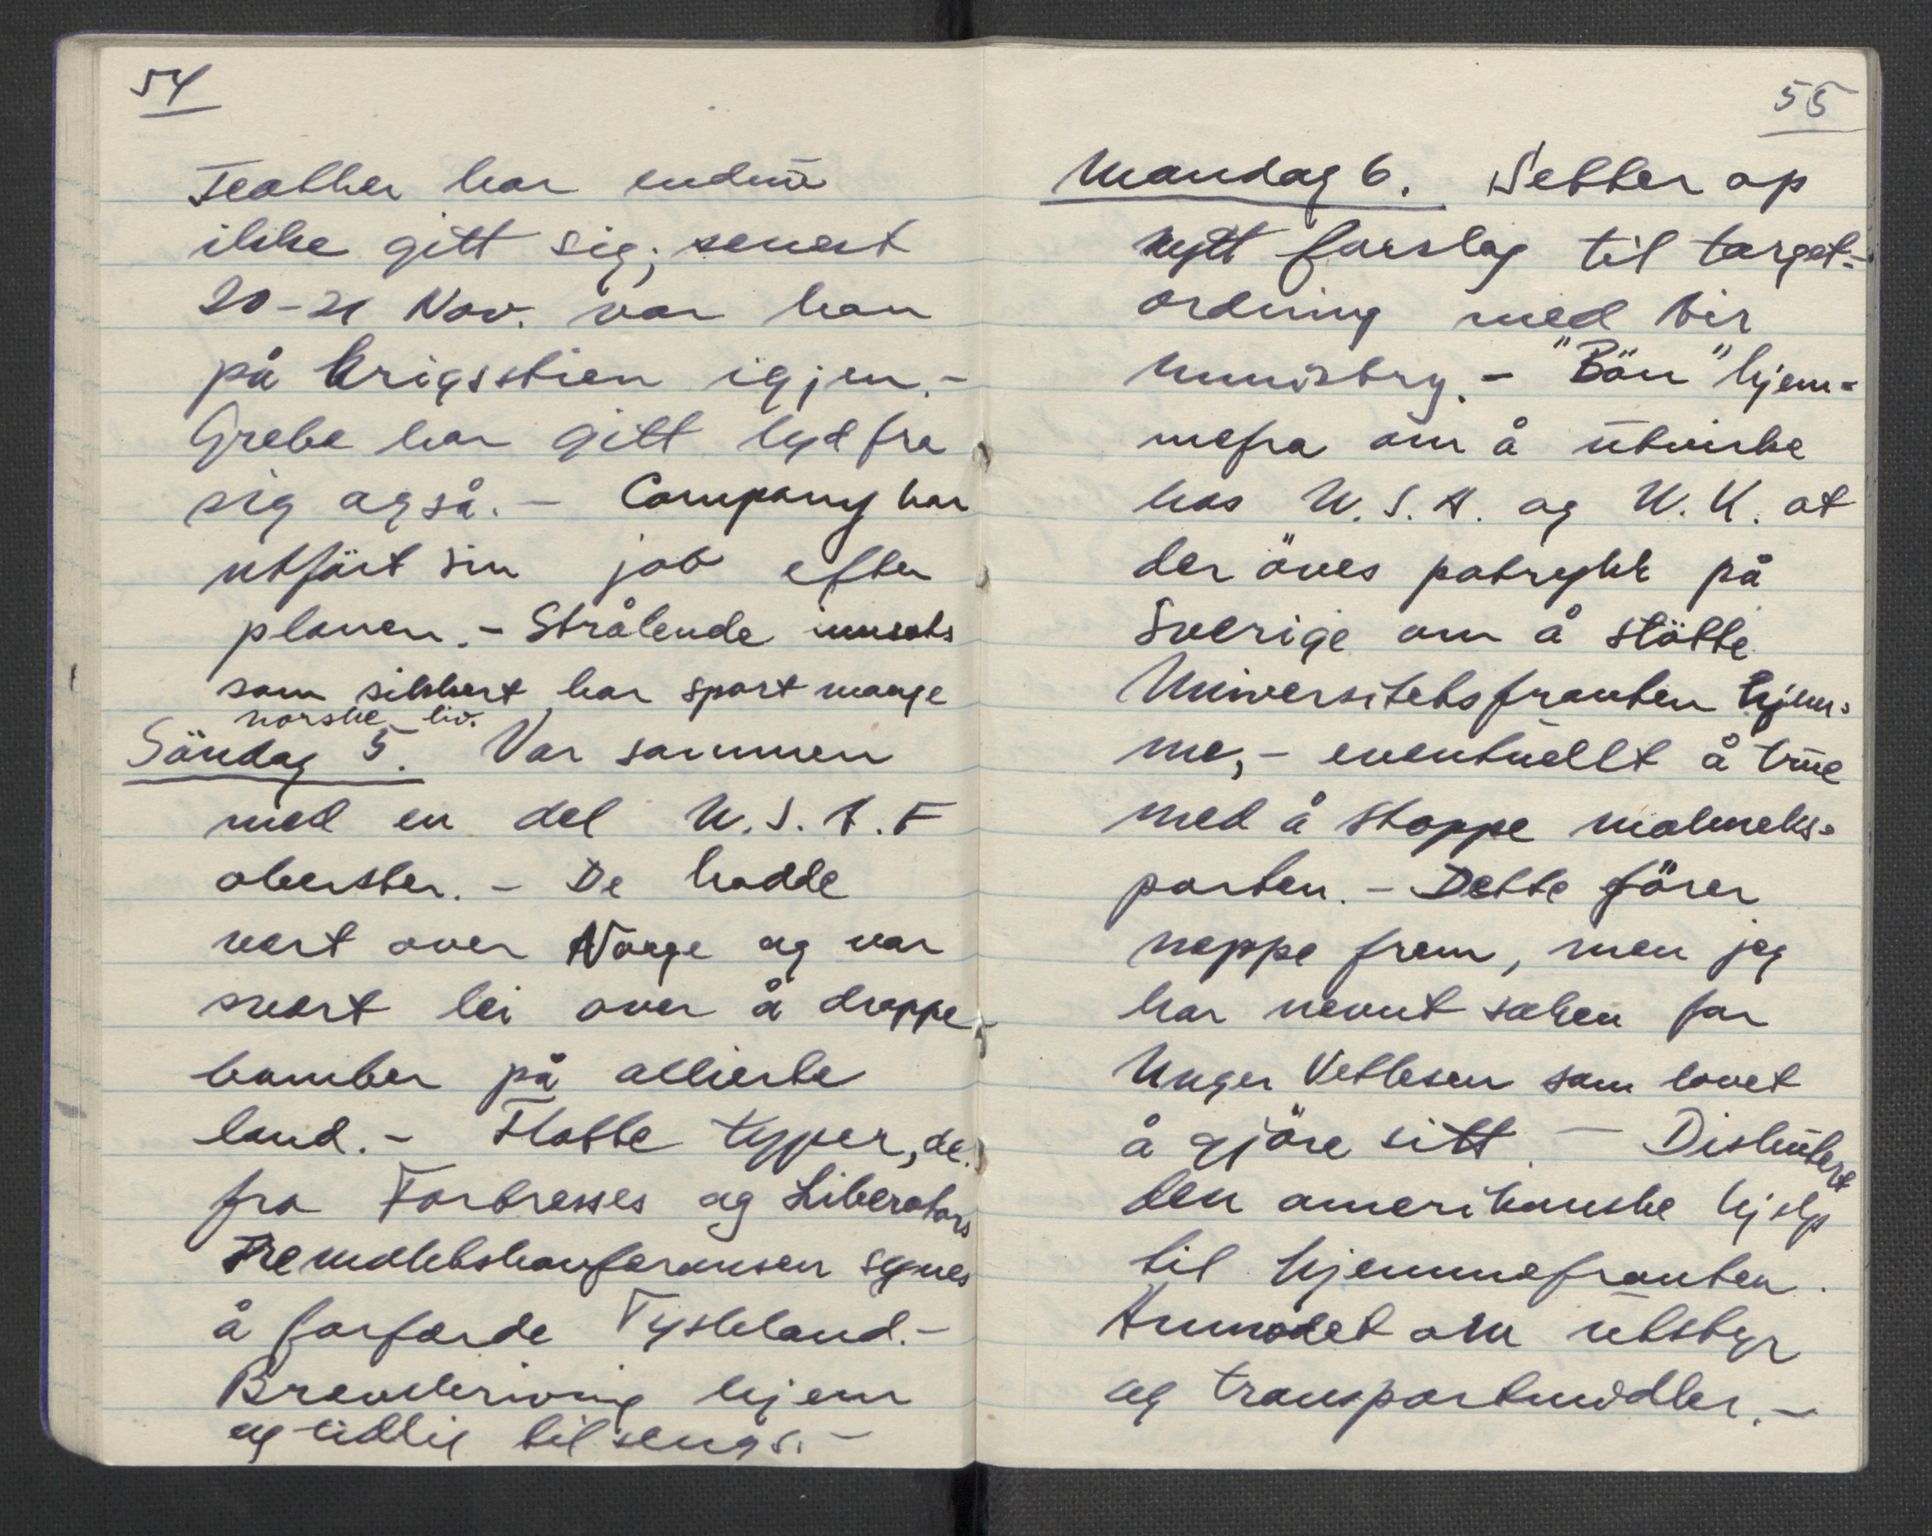 54
Feather har endnu
ikke gitt sig; senest
20-21 Nov. var han
på krigsstien igjen.-
Grebe har gitt lyd fra
sig også. - Company har
utført sin job efter
planen. - Strålende innsats
som sikkert har spart mange
norske liv.
Söndag 5. Var sammen
med en del U.S.A.F
oberster. - De hadde
vært over Norge og var
svært lei over å droppe
bomber på allierte
land. - Flotte typer, de.
fra Fortresses og Liberators
Tremaktskonferansen synes
å forfærde Tyskland.-
Brevskriving hjem
og tidlig til sengs.-
55
Mandag 6. Setter op
nytt forslag til target-
ordning med Air
Ministry. - "Bön" hjem-
mefra om å utvirke
hos U.S.A. og U.K. at
der öves påtrykk på
Sverige om å stötte
Universitetsfronten hjem-
me, - eventuellt å true
med å stoppe malmeks-
porten. - Dette förer
neppe frem, men jeg
har nevnt saken for
Unger Vetlesen som lovet
å gjöre sitt. - Diskutert
den amerikanske hjelp
til hjemmefronten.
Anmodet om utstyr
og transportmidler. -